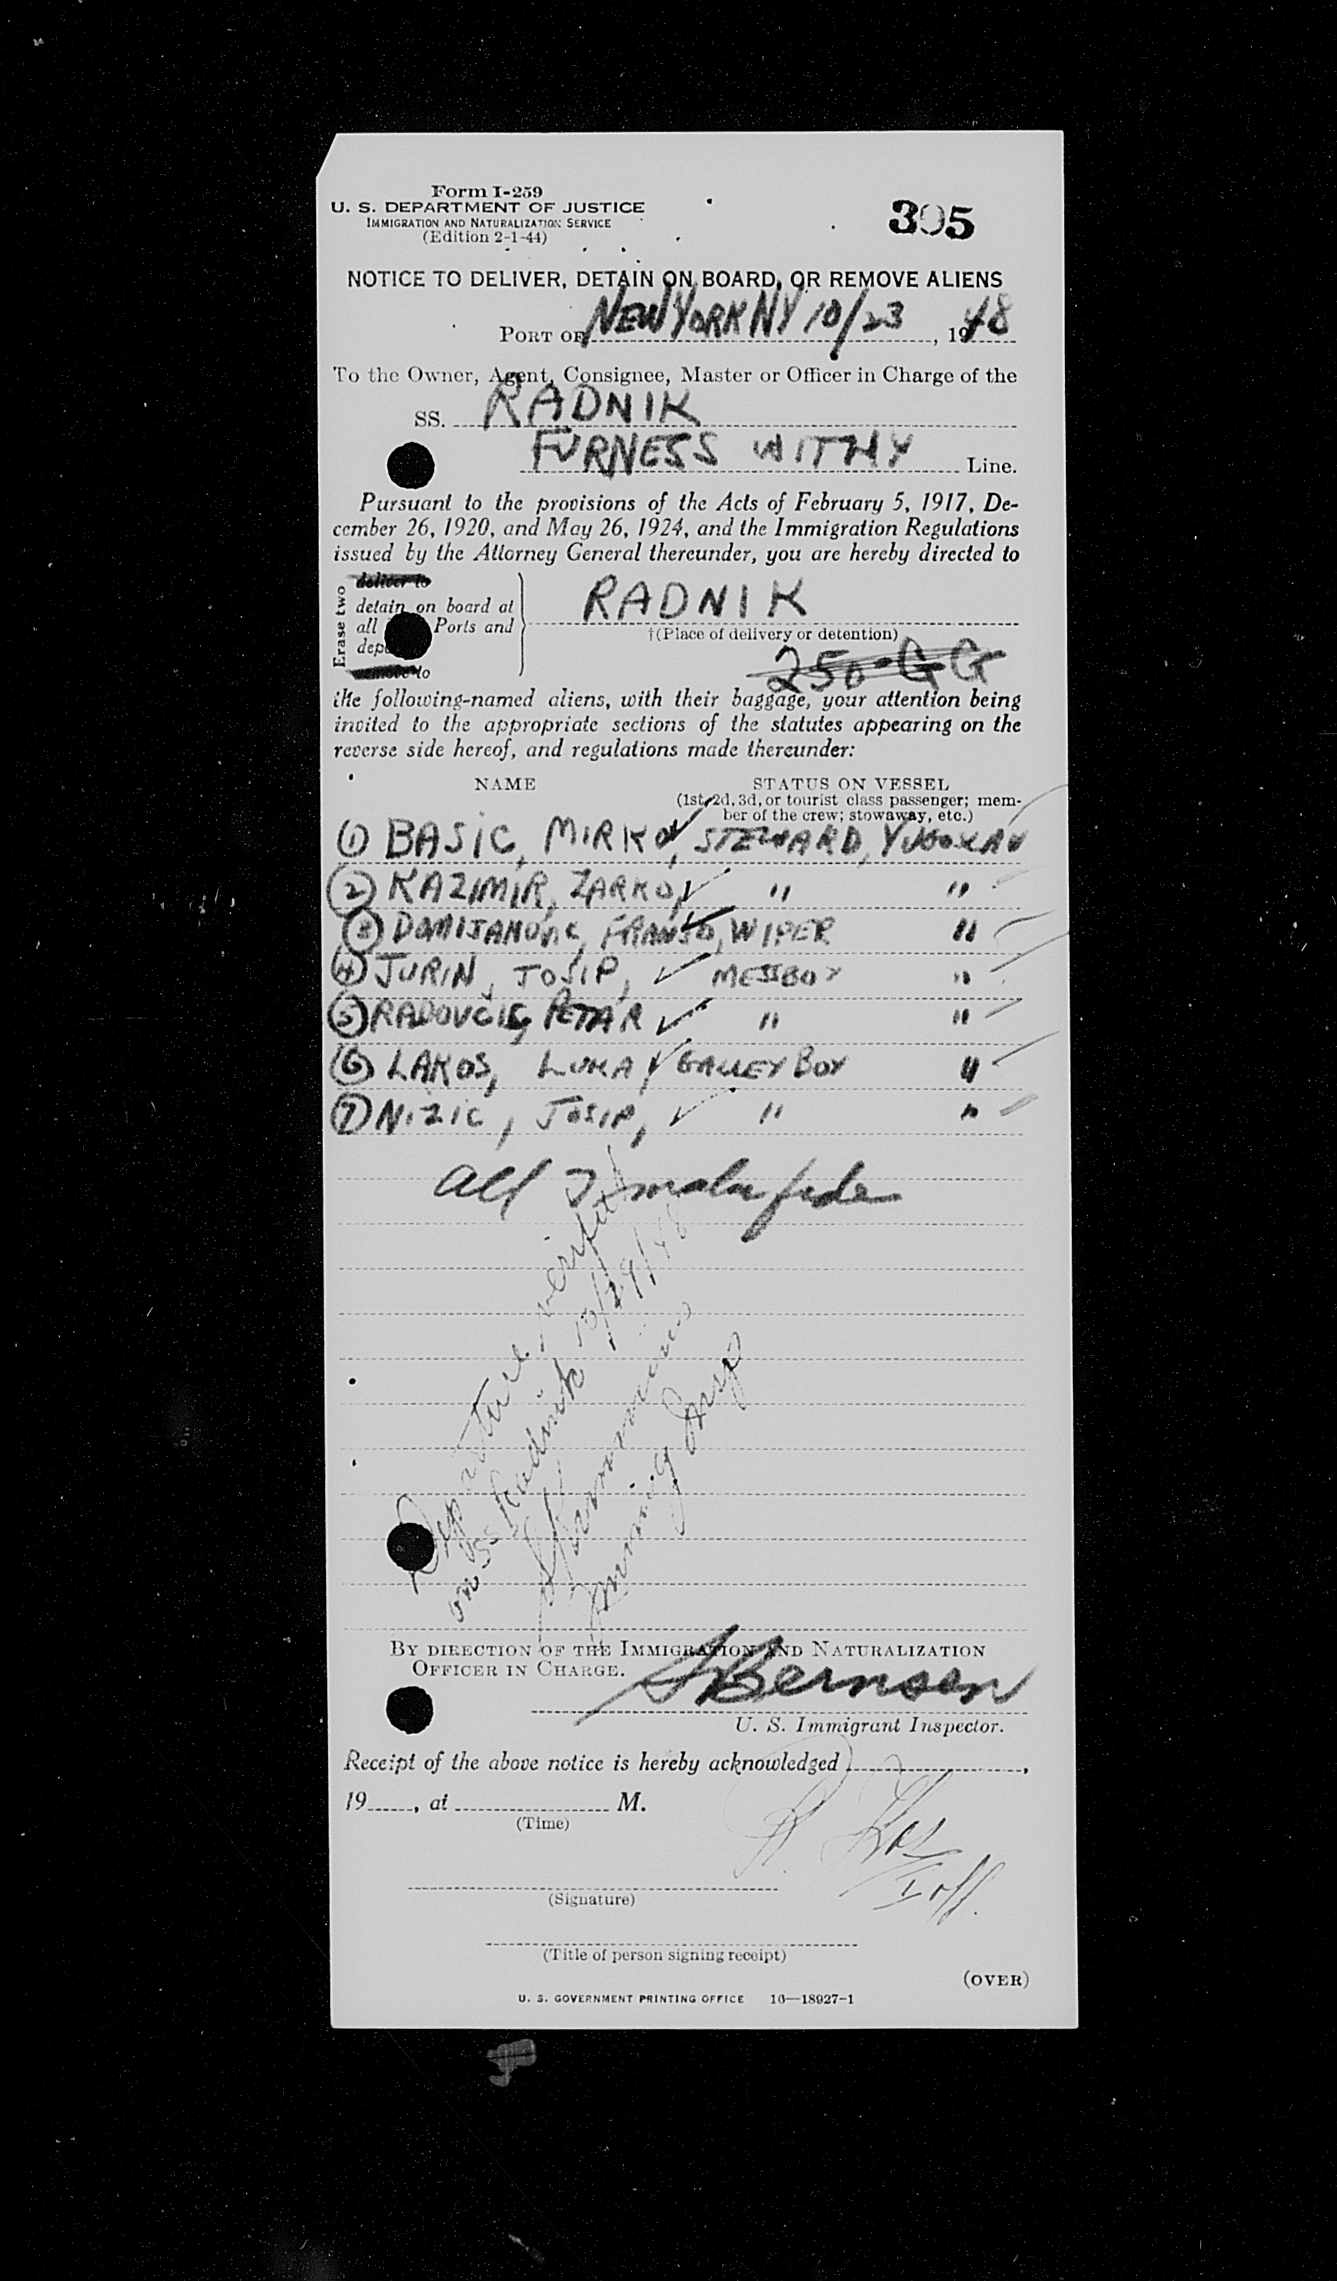 Form I-259
U. S. DEPARTMENT OF JUSTICE
IMMIGRATION AND NATURALIZATION SERVICE
(Edition 2-1-44)
305
NOTICE TO DELIVER, DETAIN ON BOARD, OR REMOVE ALIENS
PORT OF NEW YORK NY 10/23, 1948
To the Owner, Agent, Consignee, Master or Officer in Charge of the
SS. RADNIK
FURNESS WITHY Line.
Pursuant to the provisions of the Acts of February 5, 1917, De-
cember 26, 1920, and May 26, 1924, and the Immigration Regulations
issued by the Attorney General thereunder, you are hereby directed to
Erase two
deliver to
detain on board at
all Ports and
remove to
RADNIK
†(Place of delivery or detention)
250-GG
the following-named aliens, with their baggage, your attention being
invited to the appropriate sections of the statutes appearing on the
reverse side hereof, and regulations made thereunder:
NAME STATUS ON VESSEL
(1st, 2d, 3d, or tourist class passenger; mem-
ber of the crew; stowaway, etc.)
1 BASIC, MIRKO, STEWARD, YUGOSLAV
2 KAZIMIR, ZARKO, " "
3 DOMIJANOVIC, FRANJO, WIPER "
4 JURIN, JOSIP, MESSBOY "
5 RADOVCIC, PETAR " "
6 LAKOS, LUKA, GALLEY BOY "
7 NIZIC, JOSIP, " "
All 7 mala fide
Departure verified
on SS Radnik 10/29/48
Immig Insp
BY DIRECTION OF THE IMMIGRATION AND NATURALIZATION
OFFICER IN CHARGE.
Bernsen
U. S. Immigrant Inspector.
Receipt of the above notice is hereby acknowledged ,
19 , at M.
(Time)
I off.
(Signature)
(Title of person signing receipt)
(OVER)
U. S. GOVERNMENT PRINTING OFFICE 16—18927-1